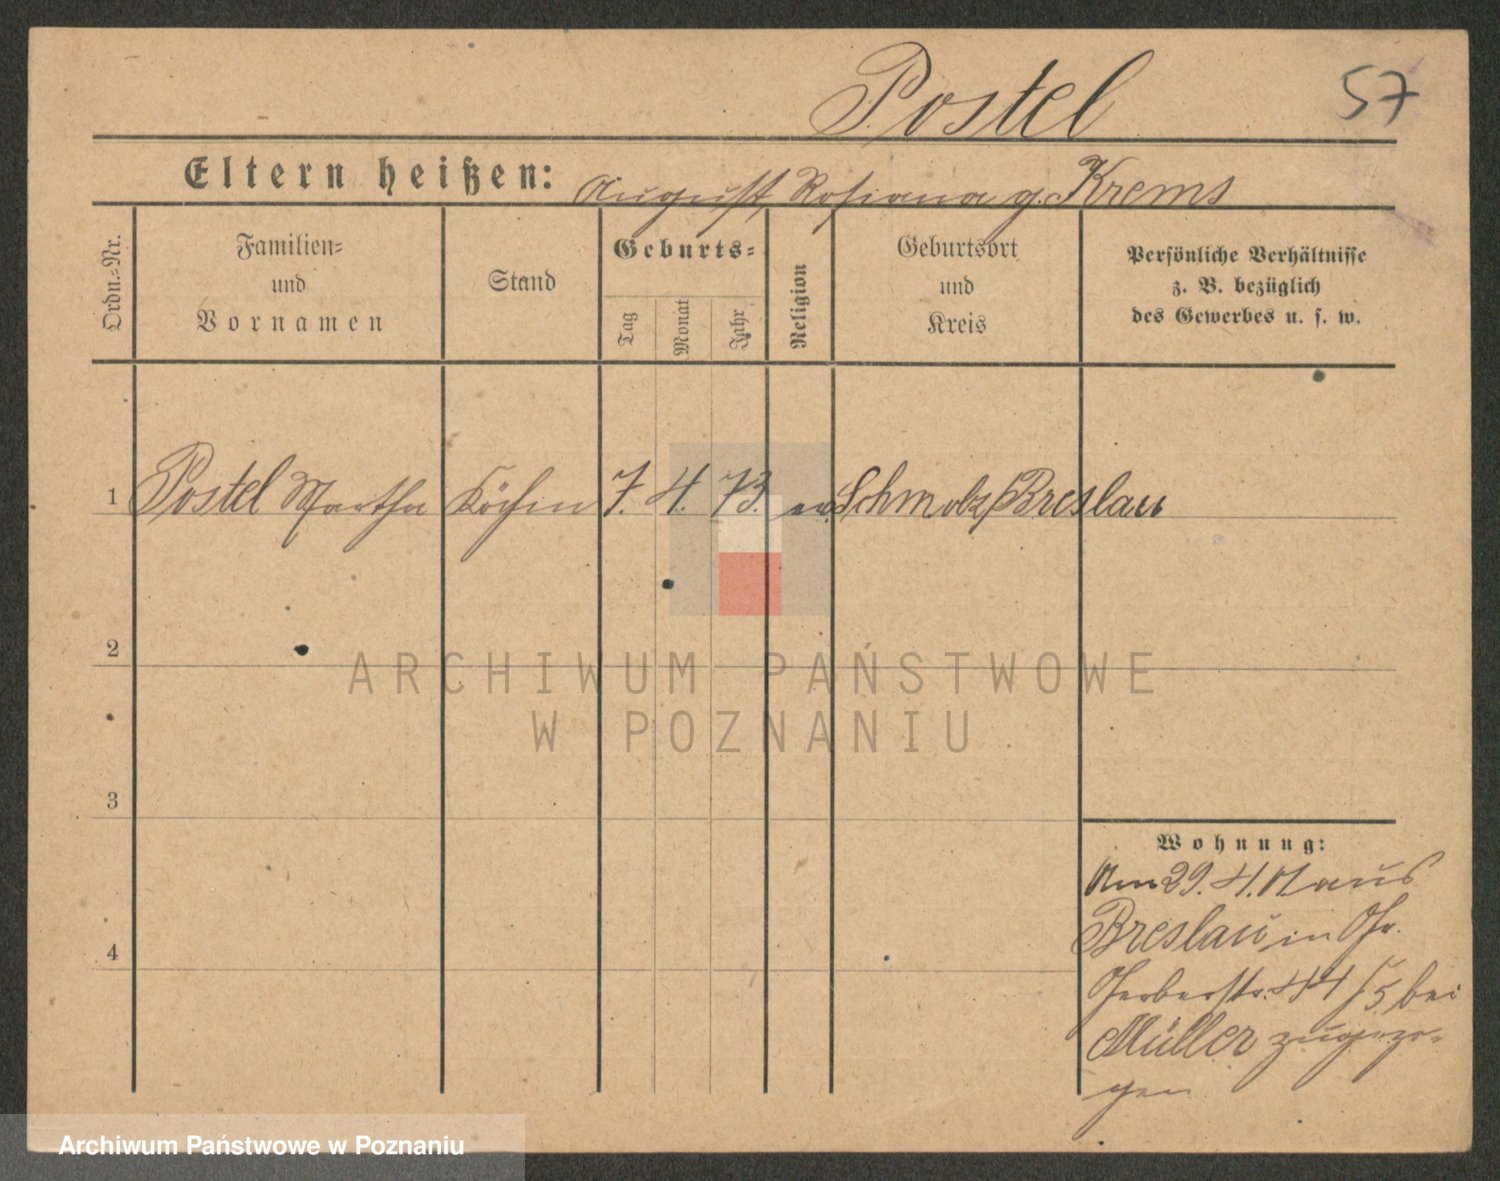 Postel 57
Eltern heißen: August, Rosiana g. Krems
Ordn.-Nr.
Familien-
und
Vornamen
Stand
Geburts-
Tag
Monat
Jahr
Religion
Geburtsort
und
Kreis
Persönliche Verhältnisse
z. B. bezüglich
des Gewerbes u. s. w.
1 Postel Martha Köchin 7. 4. 73. ev. Schmolz, Breslau
2
ARCHIWUM PAŃSTWOWE
W POZNANIU
3
Wohnung:
Am 29.4.01 aus
Breslau in
4
44 bei
Müller zugezo-
gen
Archiwum Państwowe w Poznaniu